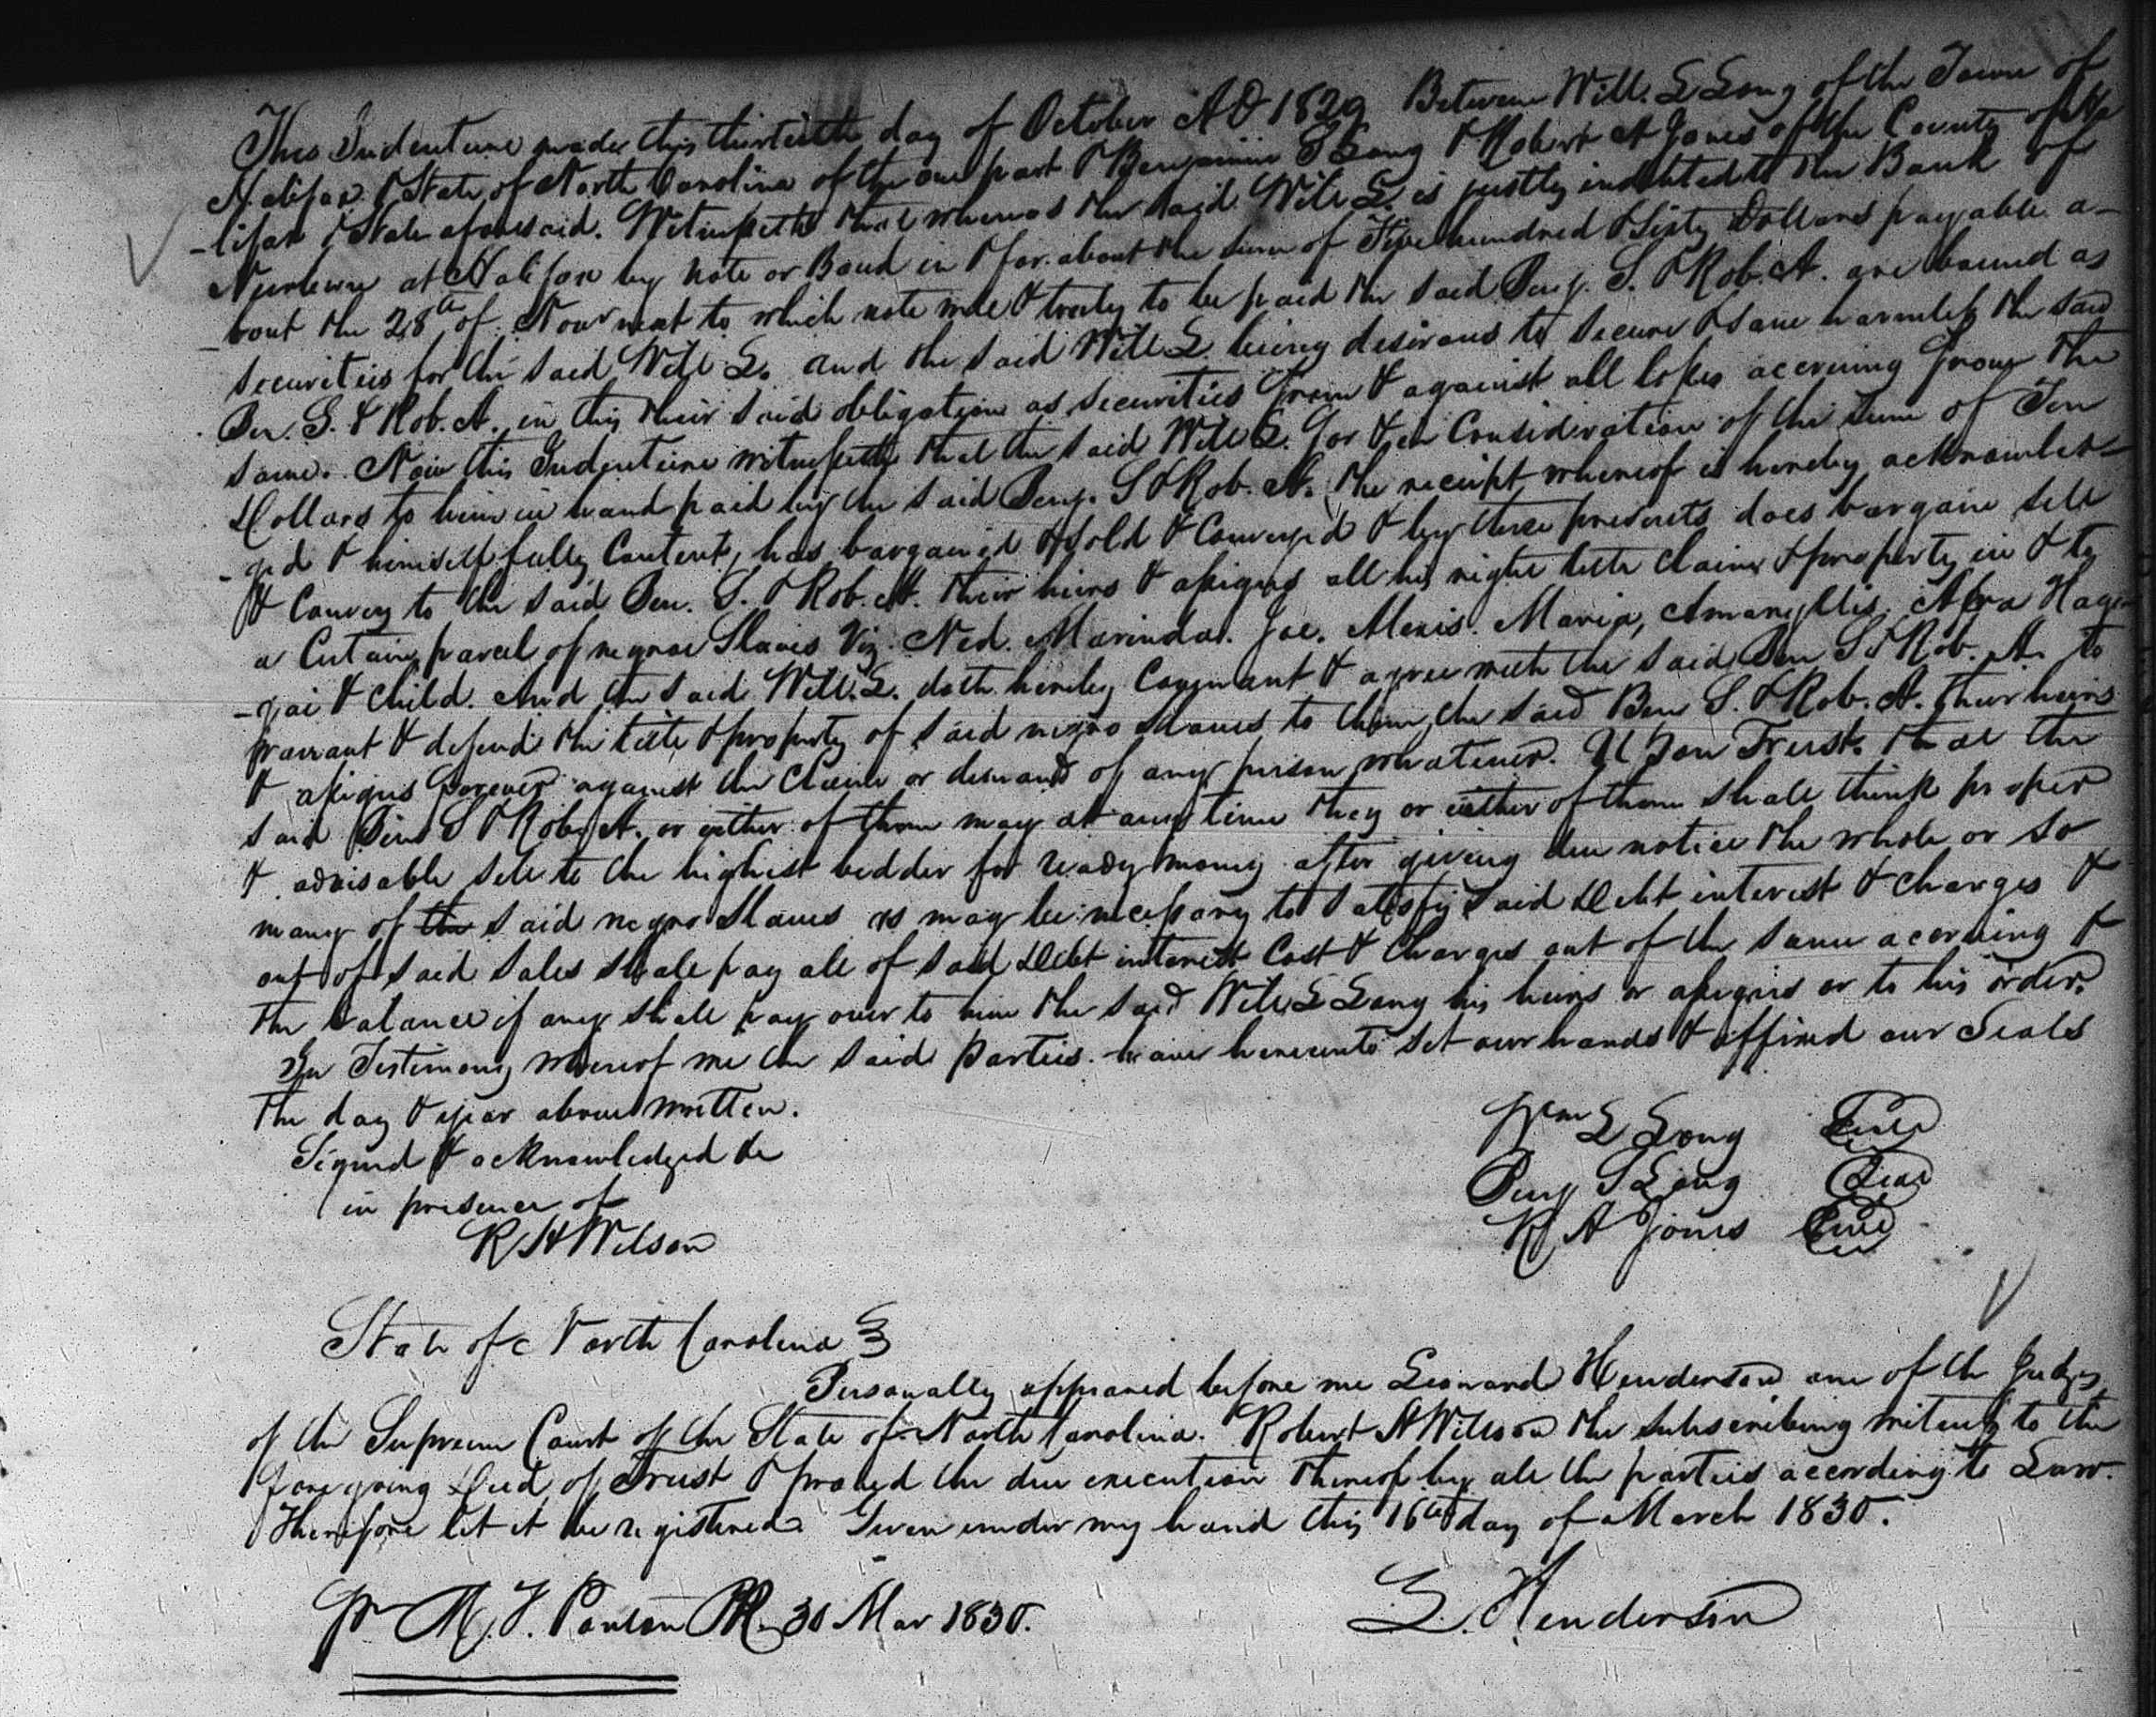 This Indenture made this thirtieth day of October A D 1829 Between Will. L Long of the Town of
Halifax & State of North Carolina of the one part & Benjamin S Long & Robert A Jones of the County of Ha
-lifax & State aforesaid. Witnesseth that whereas the said Will L. is justly indebted to the Bank of
Newbern at Halifax by note or Bond in & for about the sum of Five hundred & Sixty Dollars payable a-
-bout the 28th of Novr next to which note well & truly to be paid the said Benj. S. & Rob. A. are bound as
securities for the said Will L. and the said Will L being desirous to secure & save harmless the said
Ben. S. & Rob. A. in this their said obligation as securities from & against all losses accruing from the
same. Now this Indenture witnesseth that the said Will L. for & in Consideration of the sum of Ten
Dollars to him in hand paid by the said Benj. S & Rob. A. the receipt whereof is hereby acknowled-
-ged & himself fully Content, has bargained & sold & Conveyed & by these presents does bargain sell
& Convey to the said Ben. S. & Rob. A. their heirs & assigns all his right title claim & property in & to
a Certain parcel of negroe Slaves Viz. Ned. Marinda. Joe. Alexis. Maria, Amaryllis. Afra Hag
-gai & child. And the said Will. L. doth hereby Covenant & agree with the said Ben S & Rob. A. to
warrant & defend the title & property of said negro slaves to them the said Ben S. & Rob. A. their heirs
& assigns forever against the claim or demand of any person whatever. Upon Trust that the
said Ben S & Rob. A. or either of them may at any time they or either of them shall think proper
& advisable sell to the highest bedder for ready money after giving due notice the whole or so
many of the said negro Slaves as may be necessary to satisfy said Debt interest & charges &
out of said sales shall pay all of said Debt interest Cost & Charges out of the same accruing &
the balance if any shall pay over to him the said Will L Long his heirs or assigns or to his order.
In Testimony whereof we the said parties have hereunto set our hands & affixed our Seals
the day & year above written.
Signed & acknowledged
in presence of
R H Wilson
Wm L Long Seal
Benj S Long Seal
R A Jones Seal
State of North Carolina
Personally appeared before me Leonard Henderson one of the Judges
of the Supreme Court of the State of North Carolina. Robert H Wilson the subscribing witness to the
foregoing Deed of Trust & proved the due execution thereof by all the parties according to Law.
Therefore let it be registered Given under my hand this 16th day of March 1830.
L. Henderson
pr M. T. Ponton PR. 30 Mar 1830.